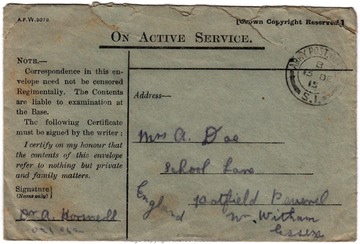 A.F.W. 3078
[Crown Copyright Reserved.]
ON ACTIVE SERVICE.
NOTE.—
Correspondence in this en-
velope need not be censored
Regimentally. The Contents
are liable to examination at
the Base.
The following Certificate
must be signed by the writer:
I certify on my honour that
the contents of this envelope
refer to nothing but private
and family matters.
Signature
(Name only)
A.
Address—
Mrs A. Doe
School Lane
Hatfield Peverel
England Nr. Witham
Essex
ARMY POST
15
S.1